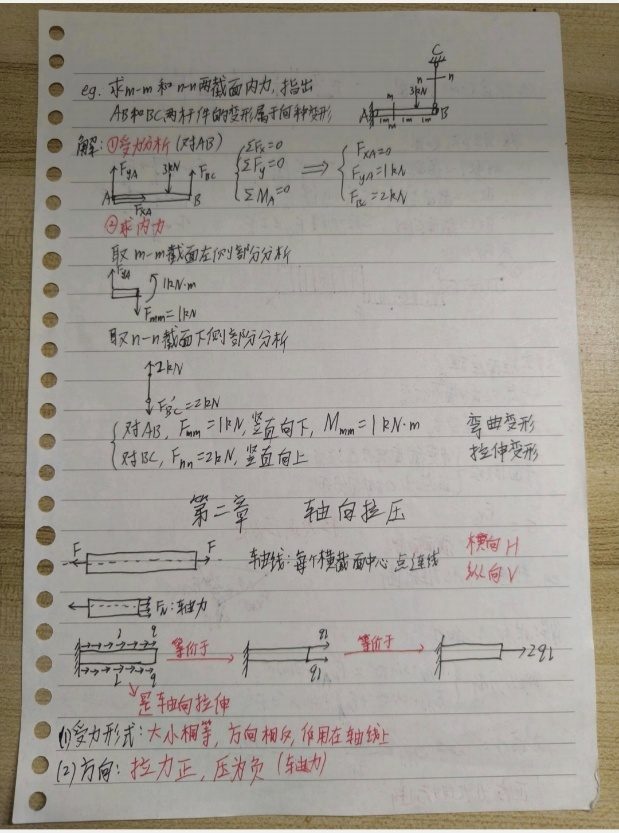 eg. 求m-m和n-n两截面内力,指出
AB和BC两杆件的变形属于何种变形
C
n n
m 3kN
A B
m 1m 1m 1m
解: ①受力分析 (对AB)
FyA 3kN FBC
A B
FxA
ΣFx=0
ΣFy=0
ΣMA=0
FxA=0
FyA=1kN
FBC=2kN
②求内力
取m-m截面左侧部分分析
FyA
1kN·m
Fmm=1kN
取n-n截面下侧部分分析
2kN
FBC'=2kN
对AB, Fmm=1kN,竖直向下, Mmm=1kN·m 弯曲变形
对BC, Fnn=2kN,竖直向上 拉伸变形
第二章 轴向拉压
F F 轴线:每个横截面中心点连线
横向H
纵向V
FN:轴力
l q
等价于 ql
等价于 2ql
l q
ql
是轴向拉伸
(1)受力形式:大小相等,方向相反,作用在轴线上
(2)方向: 拉力正,压为负 (轴力)